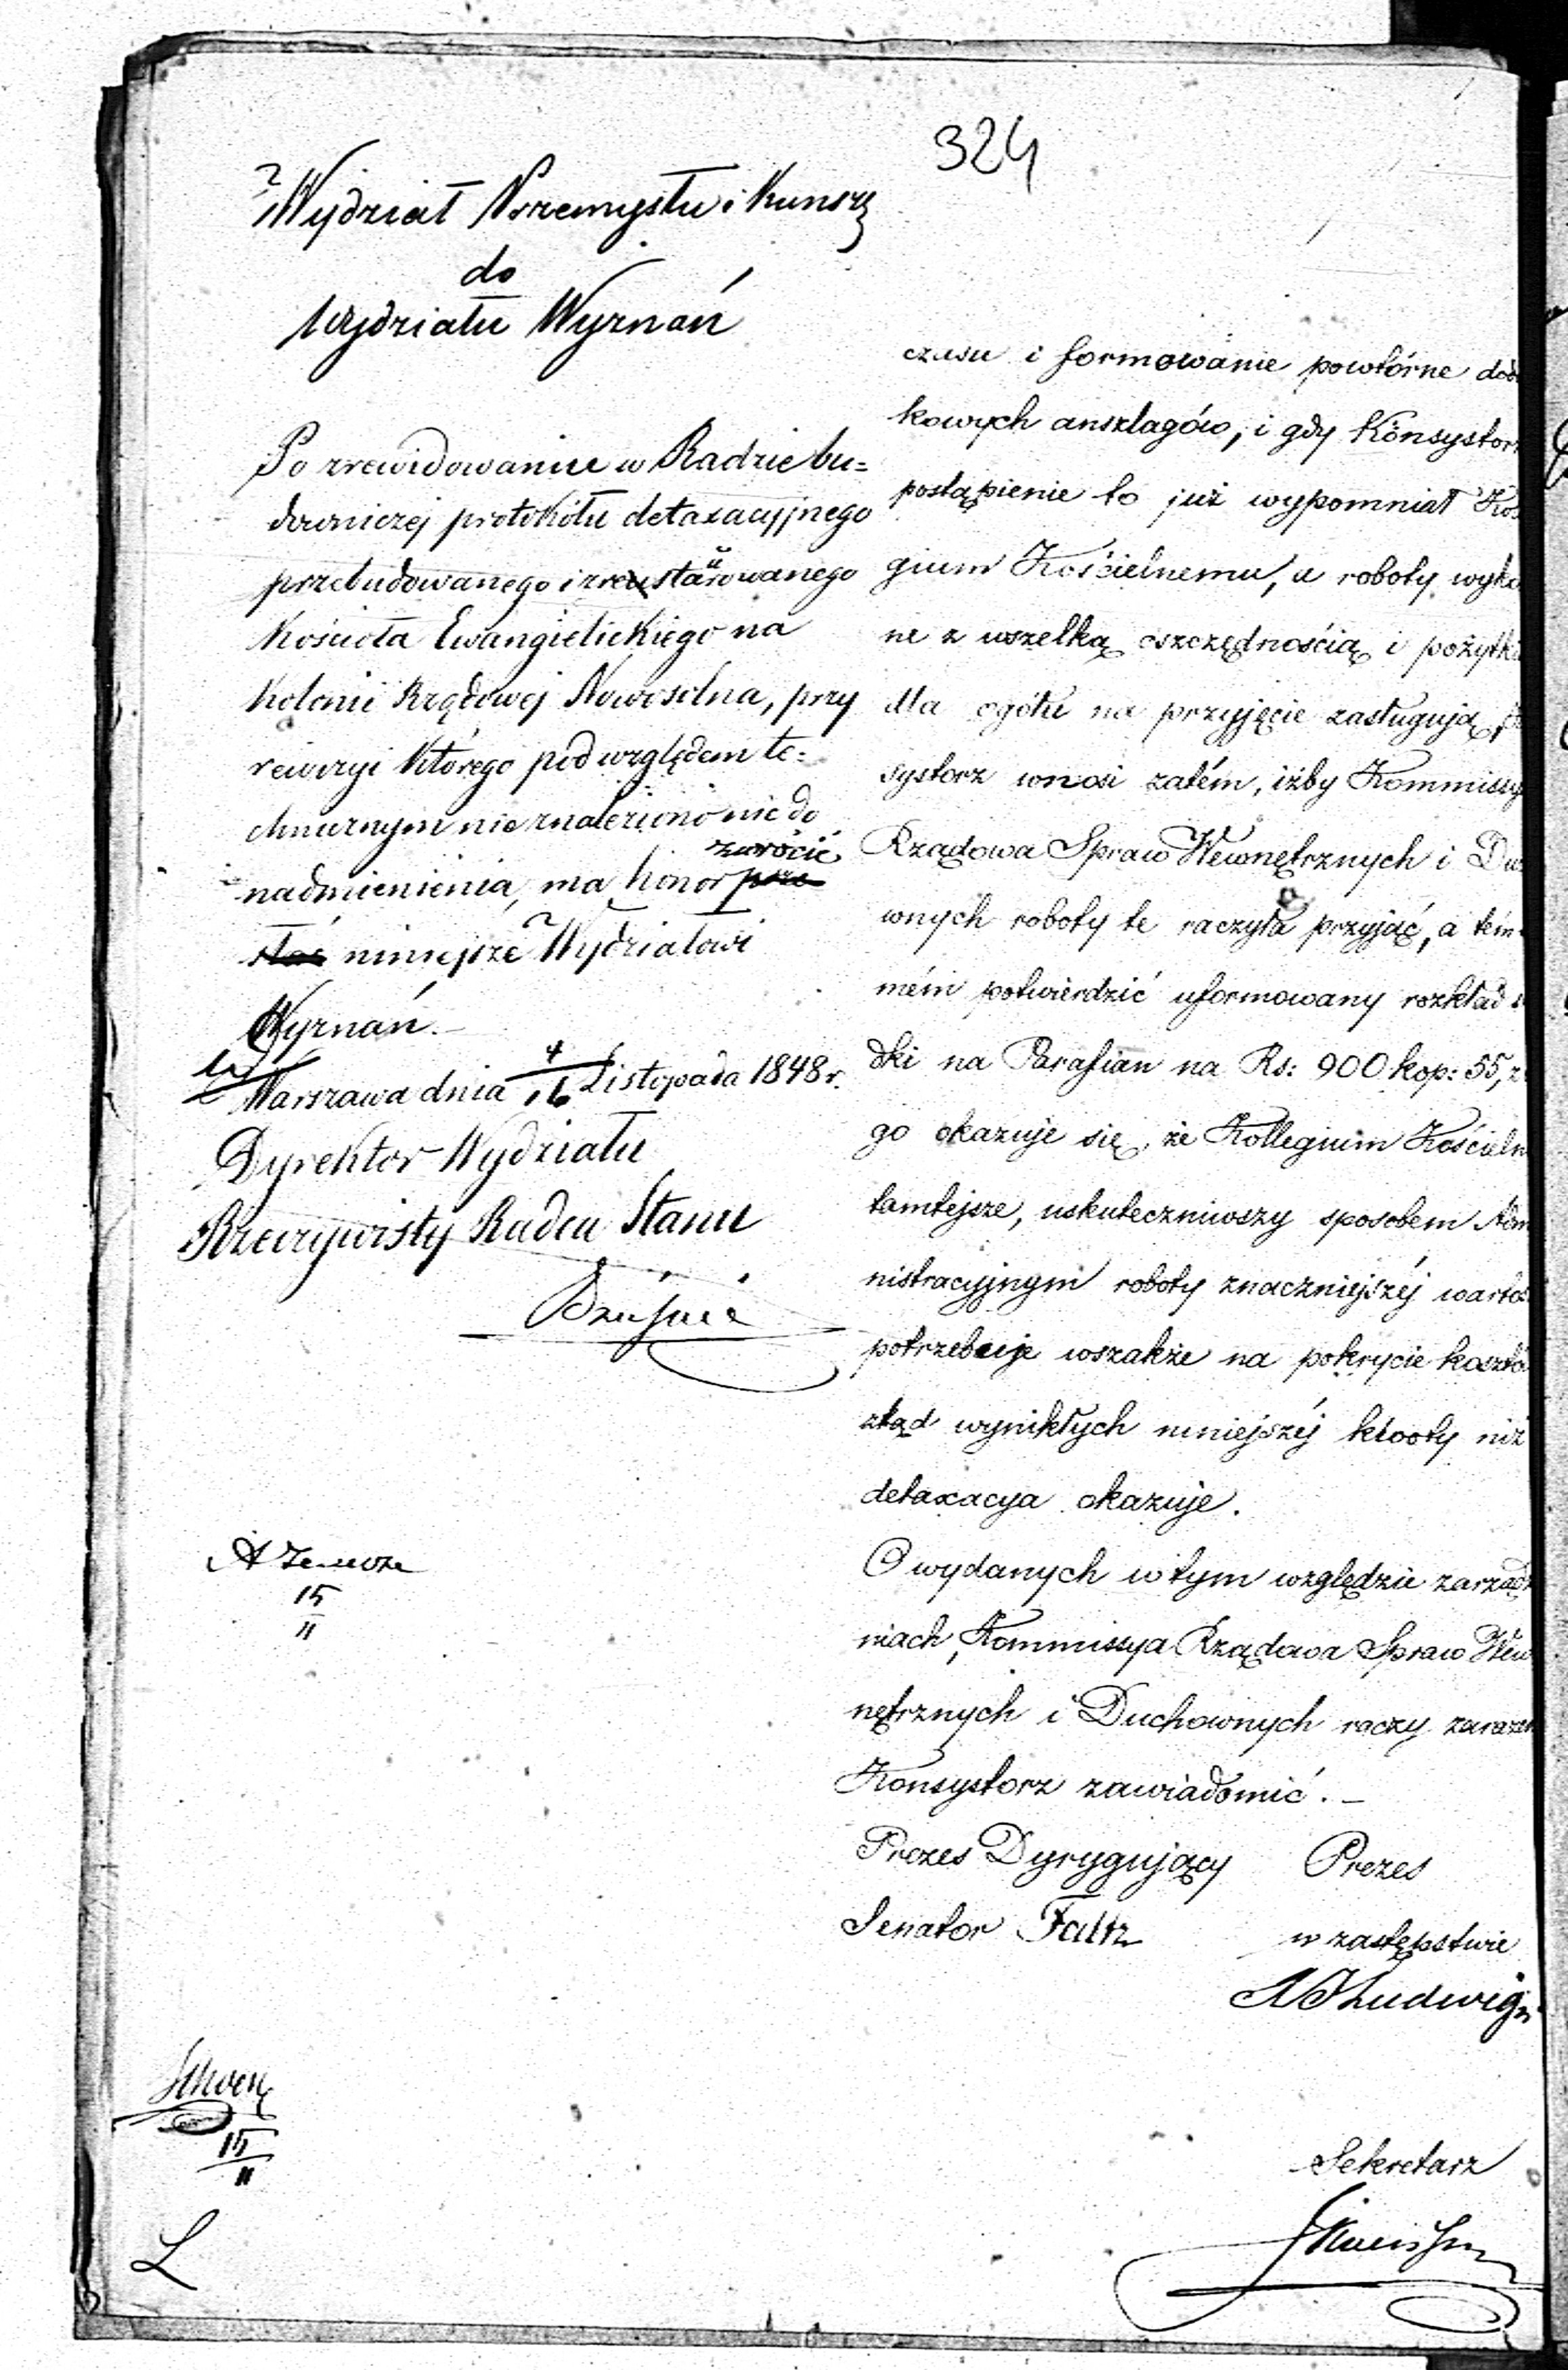 324
Wydział Przemysłu i Kunszt
do
Wydziału Wyznań
Po zrewidowaniu w Radzie bu=
downiczej protokółu detaxacyjnego
przebudowanego i zrestaurowanego
Kościoła Ewangielickiego na
Kolonii Rządowej Nowosolna, przy
rewizyi którego pod względem te=
chnicznym nie znaleziono nic do
nadmienienia, ma honor prze zwrócić
słać niniejsze Wydziałowi
Wyznań.—
Warszawa dnia 4/16 Listopada 1848 r.
Dyrektor Wydziału
Rzeczywisty Radca Stanu
15
11
15
11
L
czasu i formowanie powtórne dod
kowych anszlagów, i gdy Konsystor
postąpienie to już wypomniał Ko
gium Kościelnemu, a roboty wyko
ne z wszelką oszczędnością i pożytki
dla ogółu na przyjęcie zasługują,
systorz wnosi zatém, iżby Kommissy
Rządowa Spraw Wewnętrznych i Du
wnych roboty te raczyła przyjąć, a tém
mém potwierdzić uformowany rozkład
dki na Parafian na Rs: 900 kop: 55, z
go okazuje się, że Kollegium Kościeln
tamtejsze, uskuteczniwszy sposobem Adm
nistracyjnym roboty znaczniejszéj wartoś
potrzebuje wszakże na pokrycie kosztó
ztąd wynikłych mniejszéj kwoty niż
detaxacya okazuje.
O wydanych w tym względzie zarząd
niach, Kommissya Rządowa Spraw Wew
nętrznych i Duchownych raczy zarazem
Konsystorz zawiadomić.—
Prezes Dyrygujący Prezes
Senator Faltz w zastępstwie
Ludwig
Sekretarz